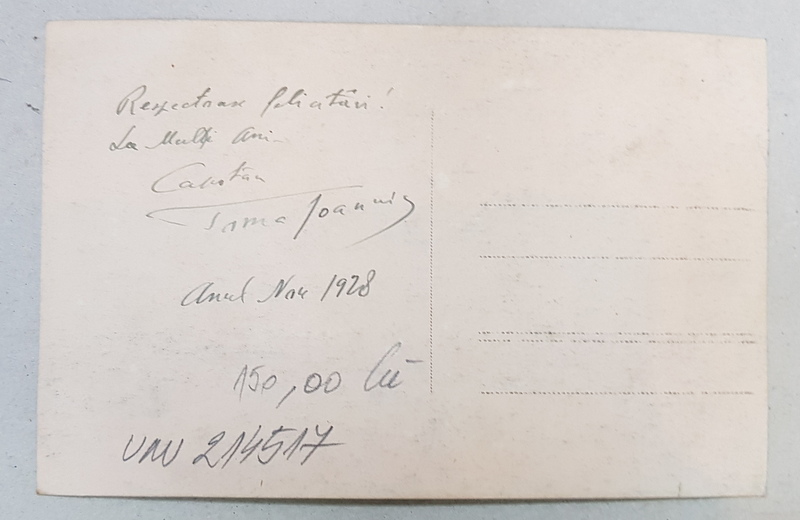 Respectoase felicitări!
La Mulți Ani
Capitan
Toma Joannin
Anul Nou 1928
150,00 lei
UNU 214517